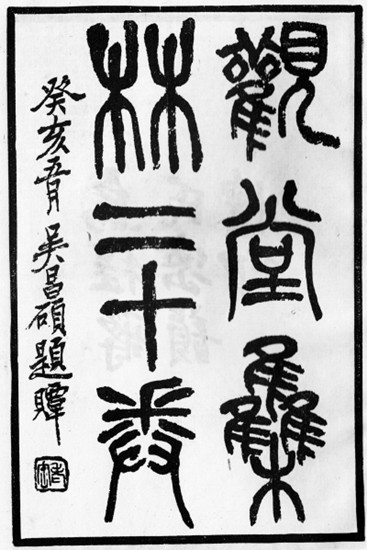 觀堂集
林二十卷
癸亥五月吳昌碩題贉